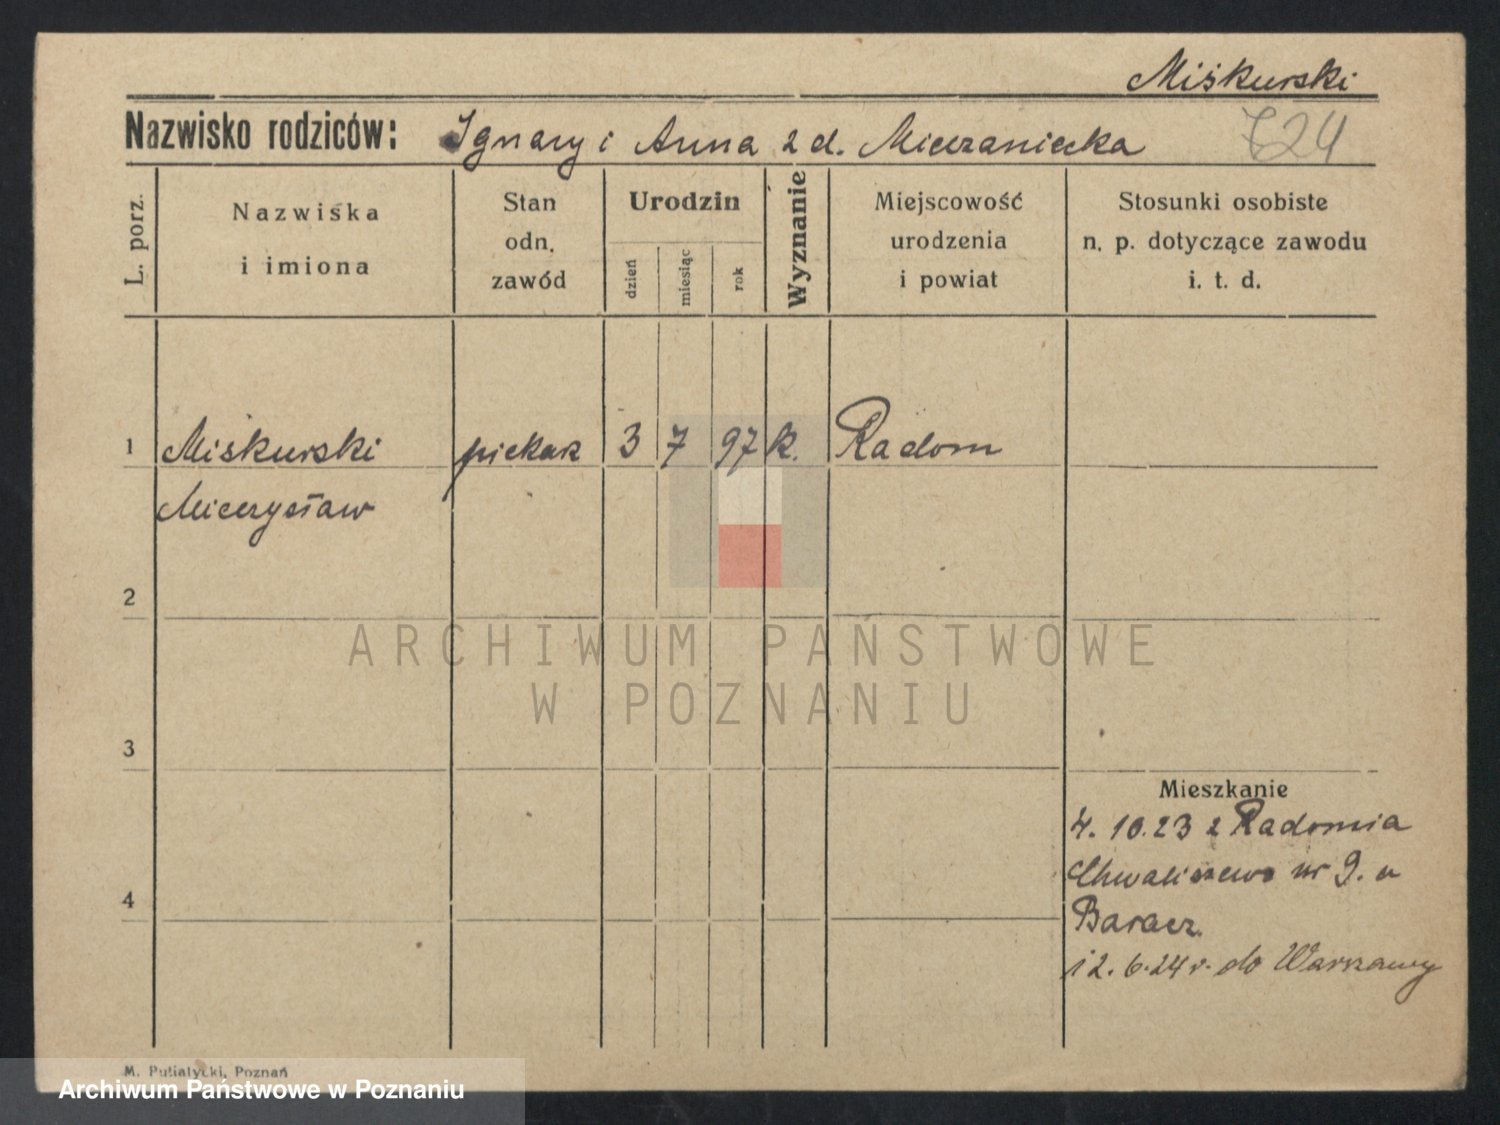 Miśkurski
Nazwisko rodziców: Ignacy i Anna z d. Mieczaniecka 724
L. porz.
Nazwiska
i imiona
Stan
odn.
zawód
Urodzin
dzień
miesiąc
rok
Wyznanie
Miejscowość
urodzenia
i powiat
Stosunki osobiste
n. p. dotyczące zawodu
i. t. d.
1 Miśkurski piekarz 3 7 97 k. Radom
Mieczysław
2
3
4
Mieszkanie
4. 10. 23 z Radomia
Chwaliszewo nr 9. u
Baracz.
12. 6. 24 r. do Warszawy
M. Putiatycki, Poznań
ARCHIWUM PAŃSTWOWE
W POZNANIU
Archiwum Państwowe w Poznaniu